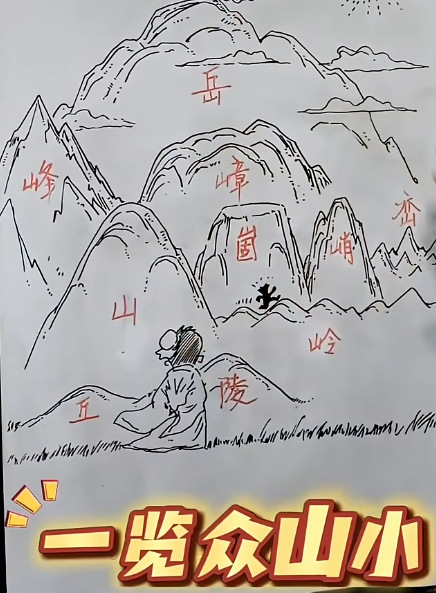 岳
峰
嶂
峦
崮
峭
山
岭
丘
陵
一览众山小